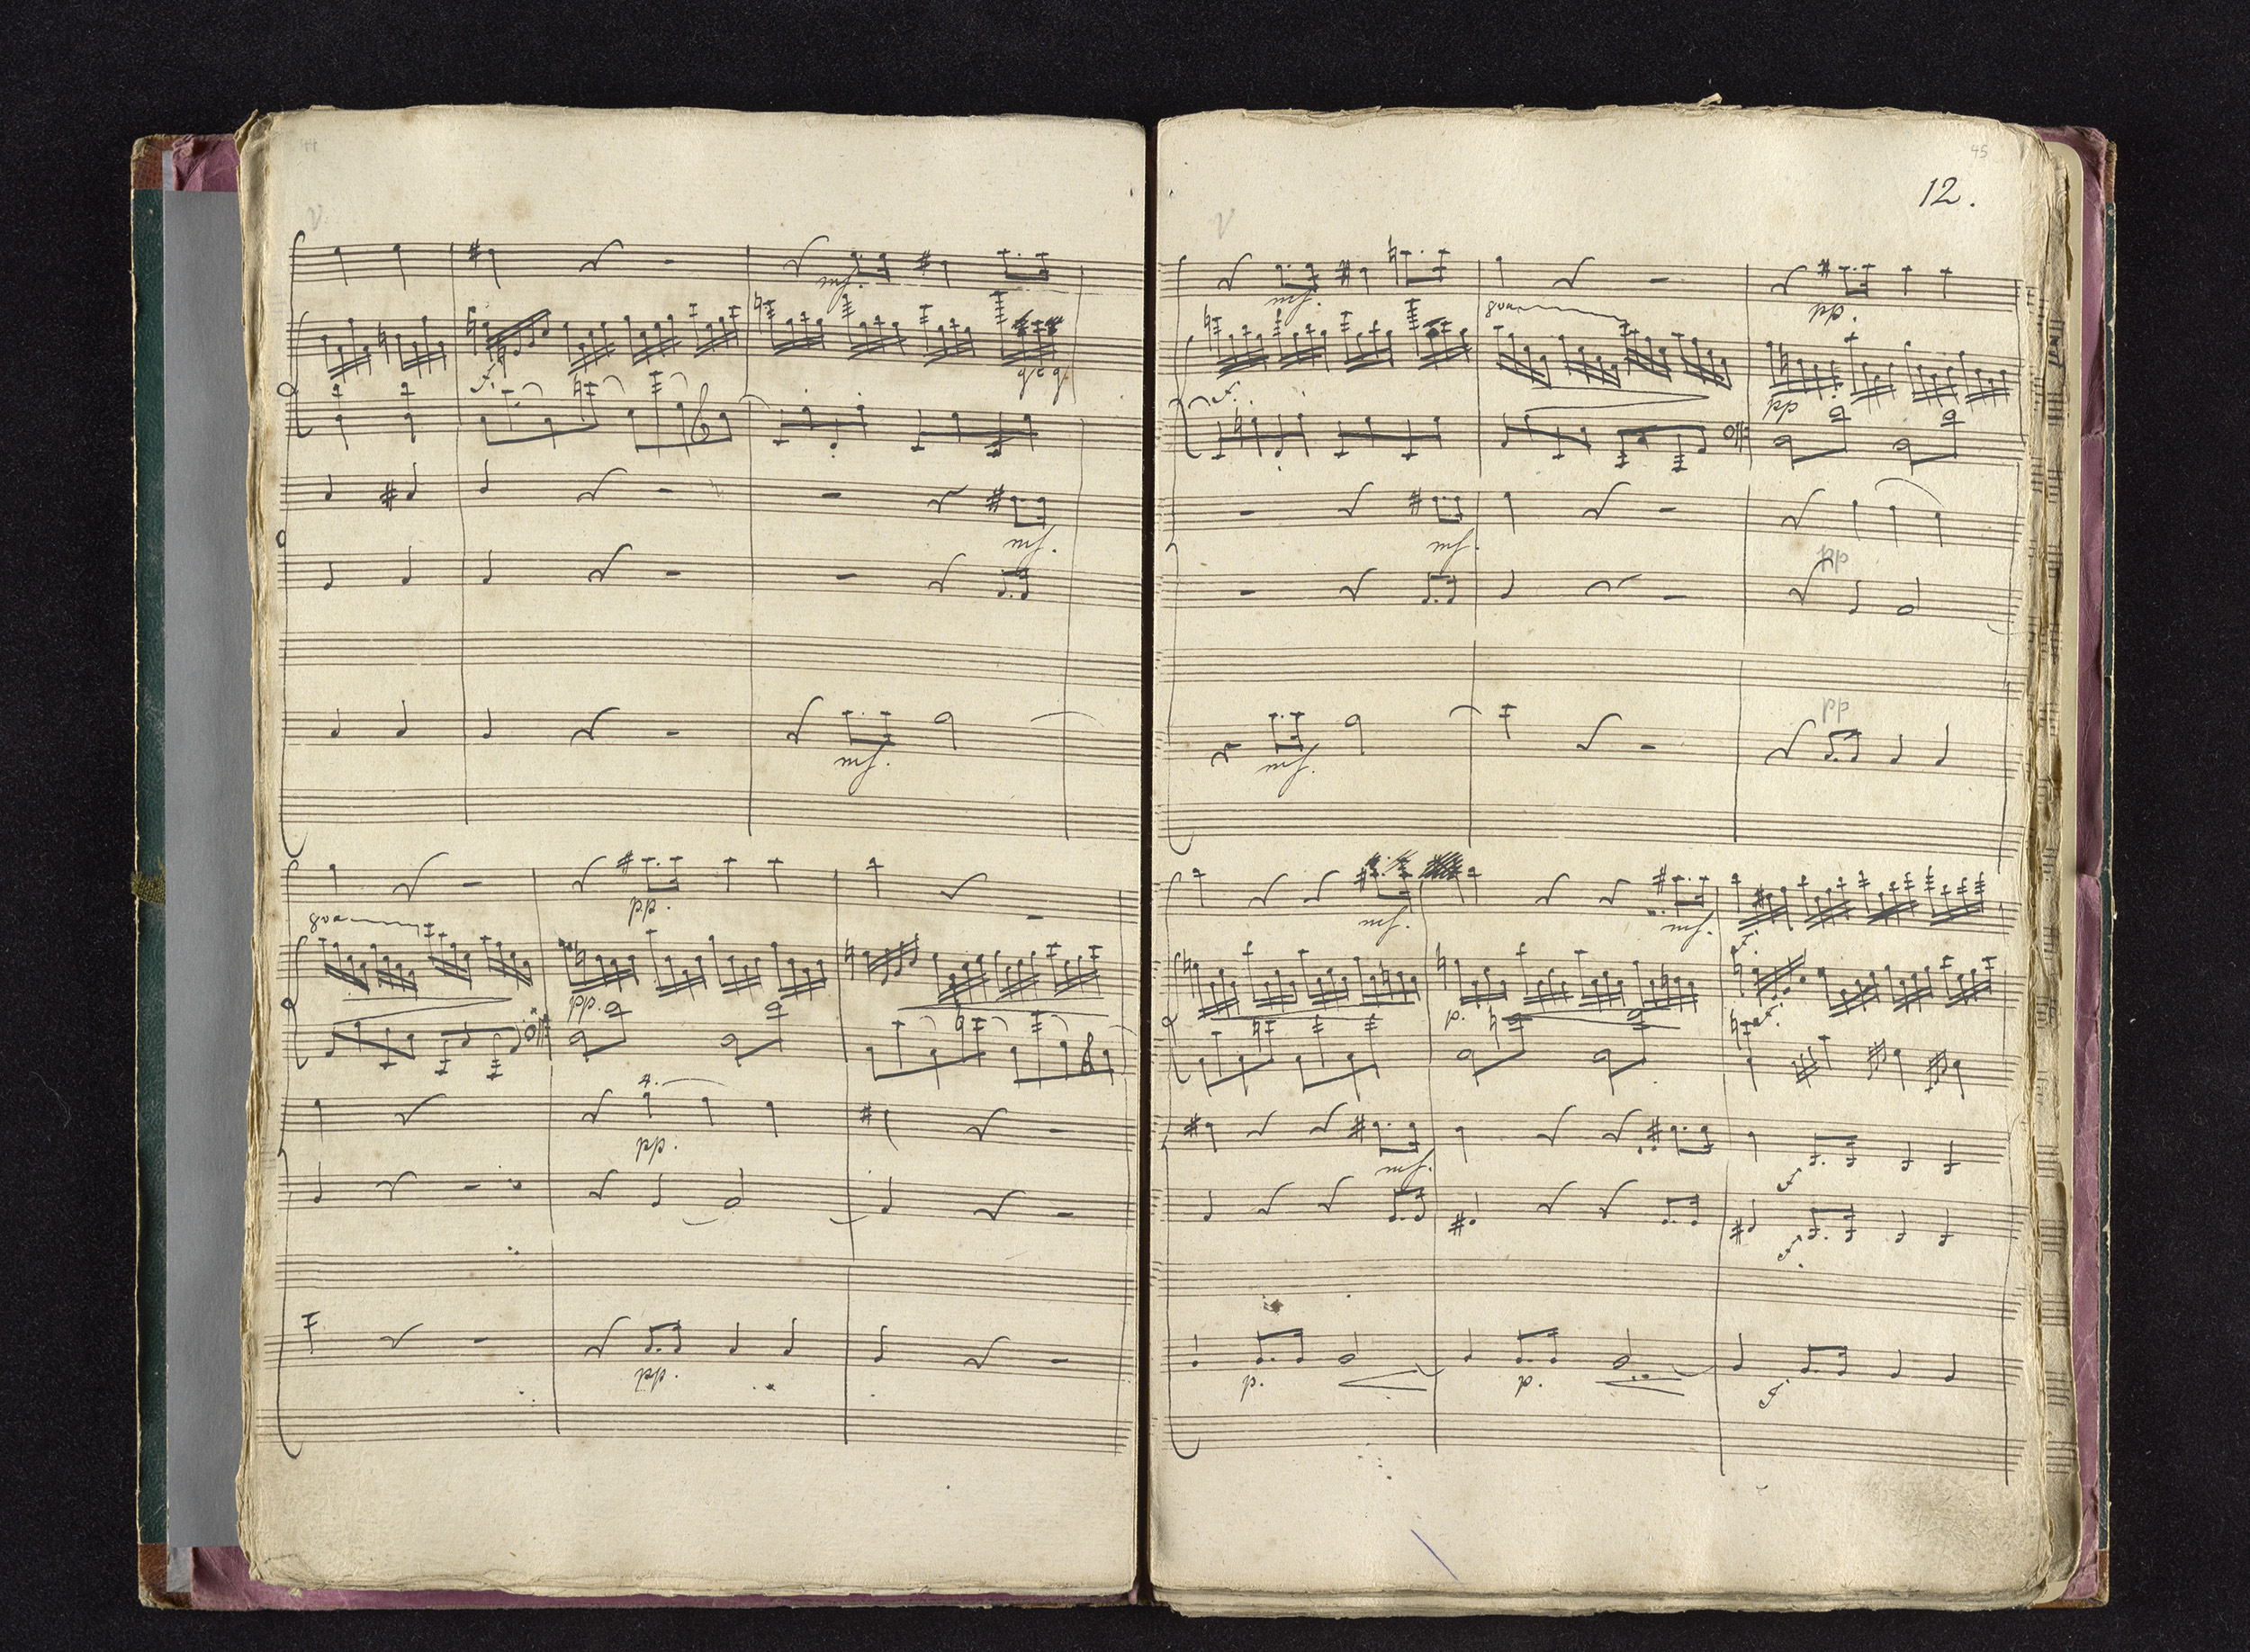 44
V.
mf.
f.
g c g
mf.
mf.
8va
pp.
pp.
4.
pp.
pp.
45
12.
V
mf.
8va
pp.
f.
pp
mf.
pp
pp
mf.
mf.
mf.
f.
p.
f.
mf.
f
f.
p.
p.
f